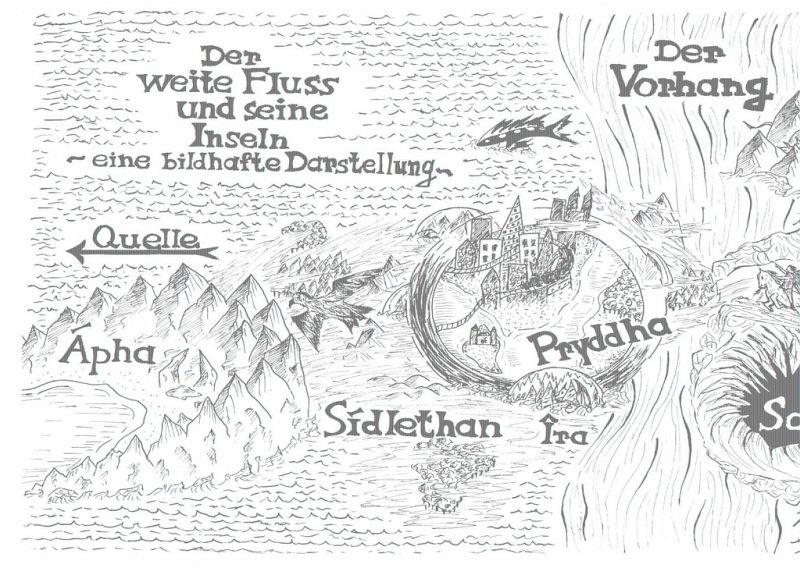 Der
weite Fluss
und seine
Inseln
~ eine bildhafte Darstellung ~
Der
Vorhang
Quelle
Ápha
Pryddha
Sídlethan
Îra